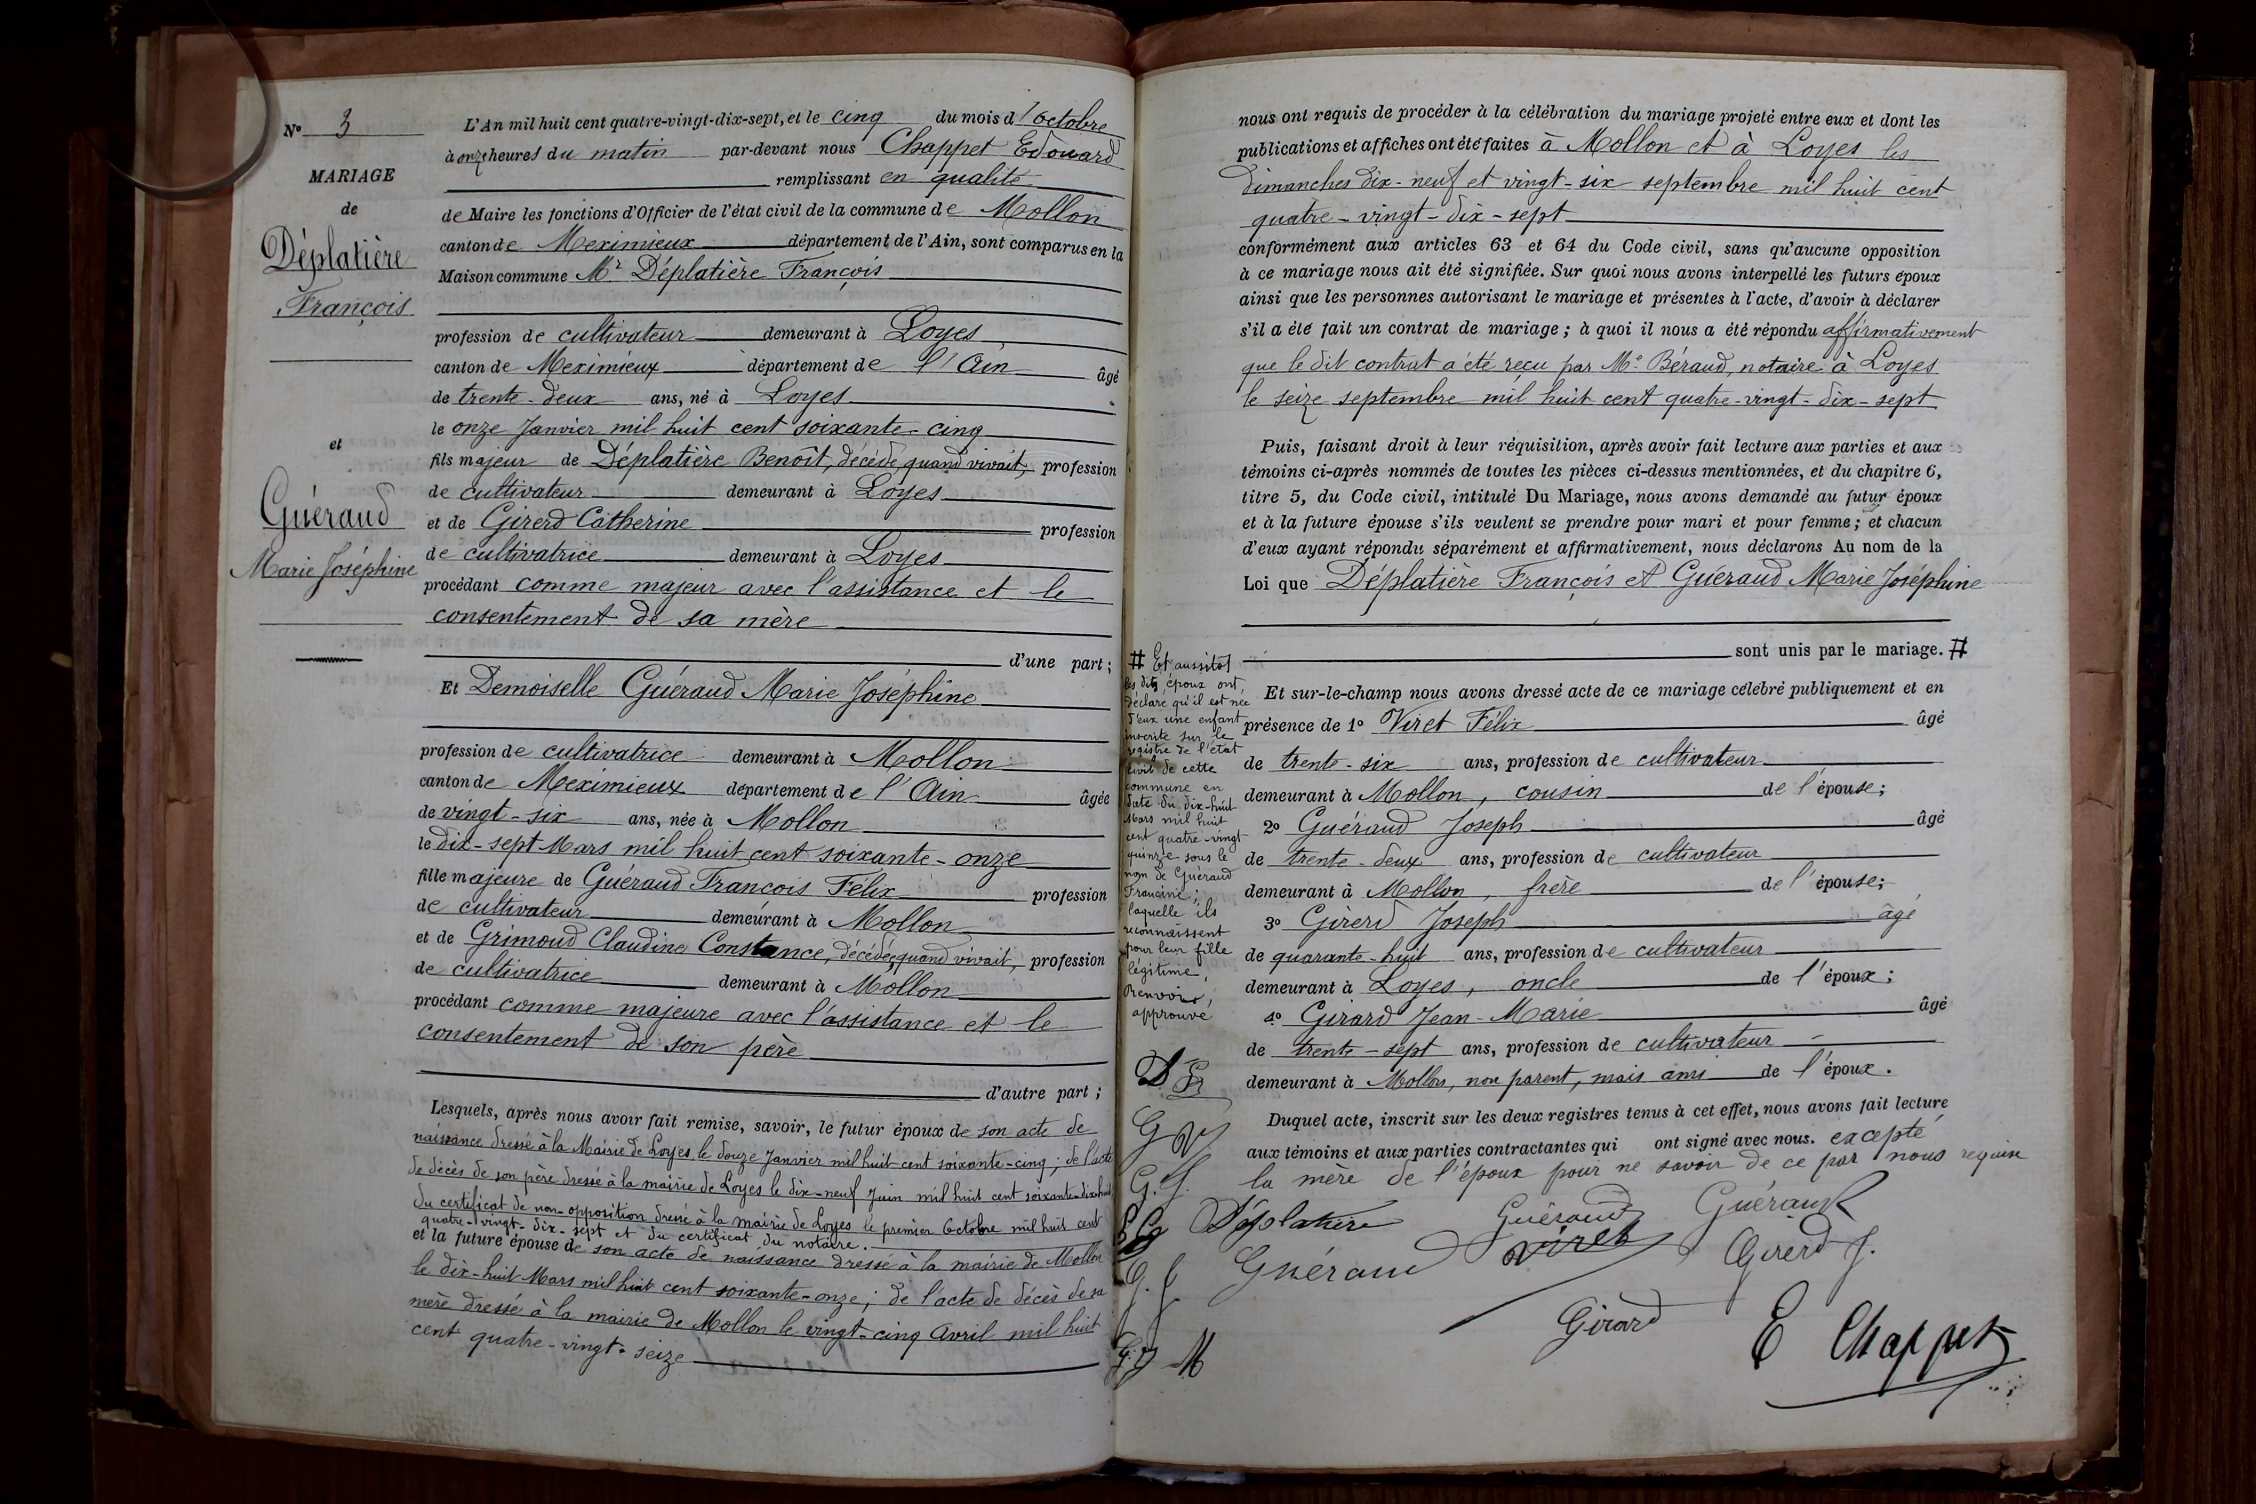 N° 3
MARIAGE
de
Déplatière
François
et
Guéraud
Marie Joséphine
L'An mil huit cent quatre-vingt-dix-sept, et le cinq du mois d'octobre
à onze heures du matin par-devant nous Chappet Edouard
remplissant en qualité
de Maire les fonctions d'Officier de l'état civil de la commune de Mollon
canton de Meximieux département de l'Ain, sont comparus en la
Maison commune Mr Déplatière François
profession de cultivateur demeurant à Loyes
canton de Meximieux département de l'Ain âgé
de trente-deux ans, né à Loyes
le onze Janvier mil huit cent soixante-cinq
fils majeur de Déplatière Benoît, décédé, quand vivait, profession
de cultivateur demeurant à Loyes
et de Girerd Catherine profession
de cultivatrice demeurant à Loyes
procédant comme majeur avec l'assistance et le
consentement de sa mère
d'une part ;
Et Demoiselle Guéraud Marie Joséphine
profession de cultivatrice demeurant à Mollon
canton de Meximieux département de l'Ain âgée
de vingt-six ans, née à Mollon
le dix-sept Mars mil huit cent soixante-onze
fille majeure de Guéraud François Félix profession
de cultivateur demeurant à Mollon
et de Grimoud Claudine Constance, décédée, quand vivait, profession
de cultivatrice demeurant à Mollon
procédant comme majeure avec l'assistance et le
consentement de son père
d'autre part ;
Lesquels, après nous avoir fait remise, savoir, le futur époux de son acte de
naissance dressé à la Mairie de Loyes le douze Janvier mil huit cent soixante-cinq ; de l'acte
de décès de son père dressé à la mairie de Loyes le dix-neuf Juin mil huit cent soixante-dix-huit
du certificat de non-opposition dressé à la mairie de Loyes le premier Octobre mil huit cent
quatre-vingt-dix-sept et du certificat du notaire.
et la future épouse de son acte de naissance dressé à la mairie de Mollon
le dix-huit Mars mil huit cent soixante-onze ; de l'acte de décès de sa
mère dressé à la mairie de Mollon le vingt-cinq Avril mil huit
cent quatre-vingt-seize
nous ont requis de procéder à la célébration du mariage projeté entre eux et dont les
publications et affiches ont été faites à Mollon et à Loyes les
dimanches dix-neuf et vingt-six septembre mil huit cent
quatre-vingt-dix-sept
conformément aux articles 63 et 64 du Code civil, sans qu'aucune opposition
à ce mariage nous ait été signifiée. Sur quoi nous avons interpellé les futurs époux
ainsi que les personnes autorisant le mariage et présentes à l'acte, d'avoir à déclarer
s'il a été fait un contrat de mariage ; à quoi il nous a été répondu affirmativement
que le dit contrat a été reçu par Me Béraud, notaire à Loyes
le seize septembre mil huit cent quatre-vingt-dix-sept
Puis, faisant droit à leur réquisition, après avoir fait lecture aux parties et aux
témoins ci-après nommés de toutes les pièces ci-dessus mentionnées, et du chapitre 6,
titre 5, du Code civil, intitulé Du Mariage, nous avons demandé au futur époux
et à la future épouse s'ils veulent se prendre pour mari et pour femme ; et chacun
d'eux ayant répondu séparément et affirmativement, nous déclarons Au nom de la
Loi que Déplatière François et Guéraud Marie Joséphine
sont unis par le mariage. #
# Et aussitôt
les dits époux ont
déclaré qu'il est née
d'eux une enfant
inscrite sur le
registre de l'état
civil de cette
commune en
date du dix-huit
Mars mil huit
cent quatre-vingt
quinze sous le
nom de Guéraud
Francine ;
laquelle ils
reconnaissent
pour leur fille
légitime,
Renvoi,
approuvé
Et sur-le-champ nous avons dressé acte de ce mariage célébré publiquement et en
présence de 1° Viret Félix âgé
de trente-six ans, profession de cultivateur
demeurant à Mollon, cousin de l'épouse ;
2° Guéraud Joseph âgé
de trente-deux ans, profession de cultivateur
demeurant à Mollon, frère de l'épouse ;
3° Girerd Joseph âgé
de quarante-huit ans, profession de cultivateur
demeurant à Loyes, oncle de l'époux ;
4° Girard Jean-Marie âgé
de trente-sept ans, profession de cultivateur
demeurant à Mollon, non parent, mais ami de l'époux.
Duquel acte, inscrit sur les deux registres tenus à cet effet, nous avons fait lecture
aux témoins et aux parties contractantes qui ont signé avec nous. excepté
la mère de l'époux pour ne savoir de ce par nous requise
G V
G. J.
G. J
G J M
Déplatière Guéraud Guéraud
Guéraud Viret Girerd J.
Girard E Chappet